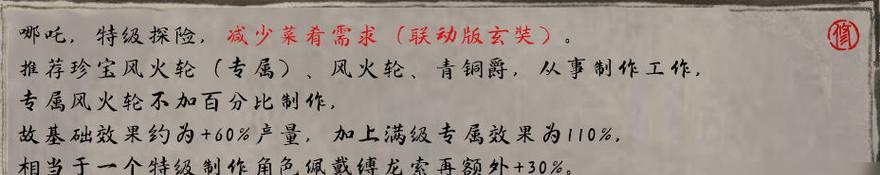 哪吒，特级探险，减少菜肴需求（联动版玄奘）。
推荐珍宝风火轮（专属）、风火轮、青铜爵，从事制作工作，
专属风火轮不加百分比制作，
故基础效果约为+60%产量，加上满级专属效果为110%，
相当于一个特级制作角色佩戴缚龙索再额外+30%。